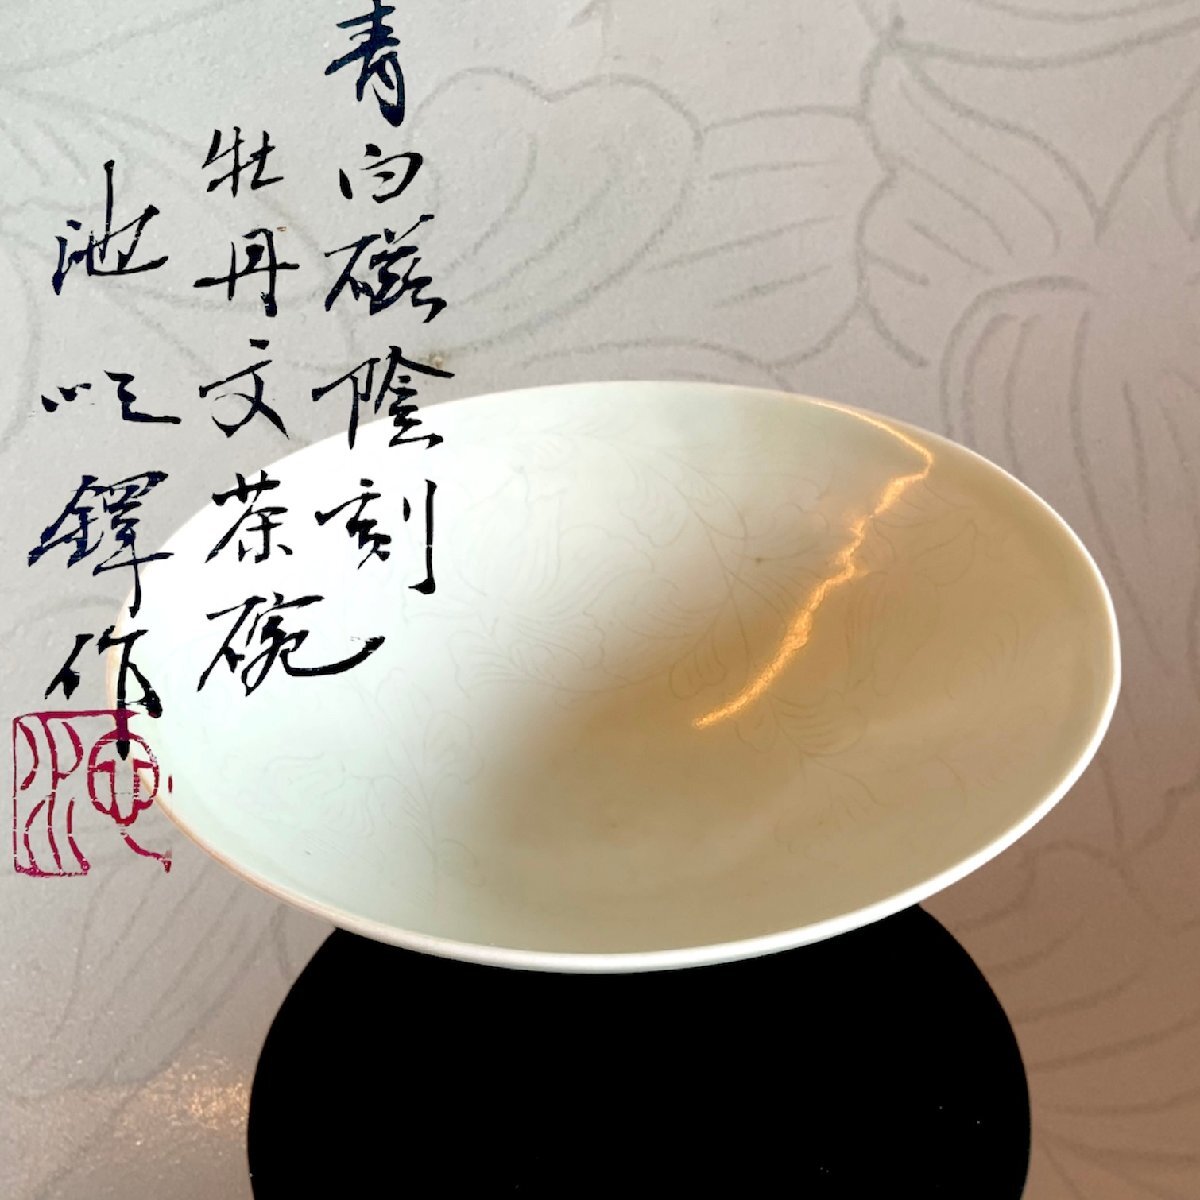 青白磁陰刻
牡丹文茶碗
池 順鐸作
池